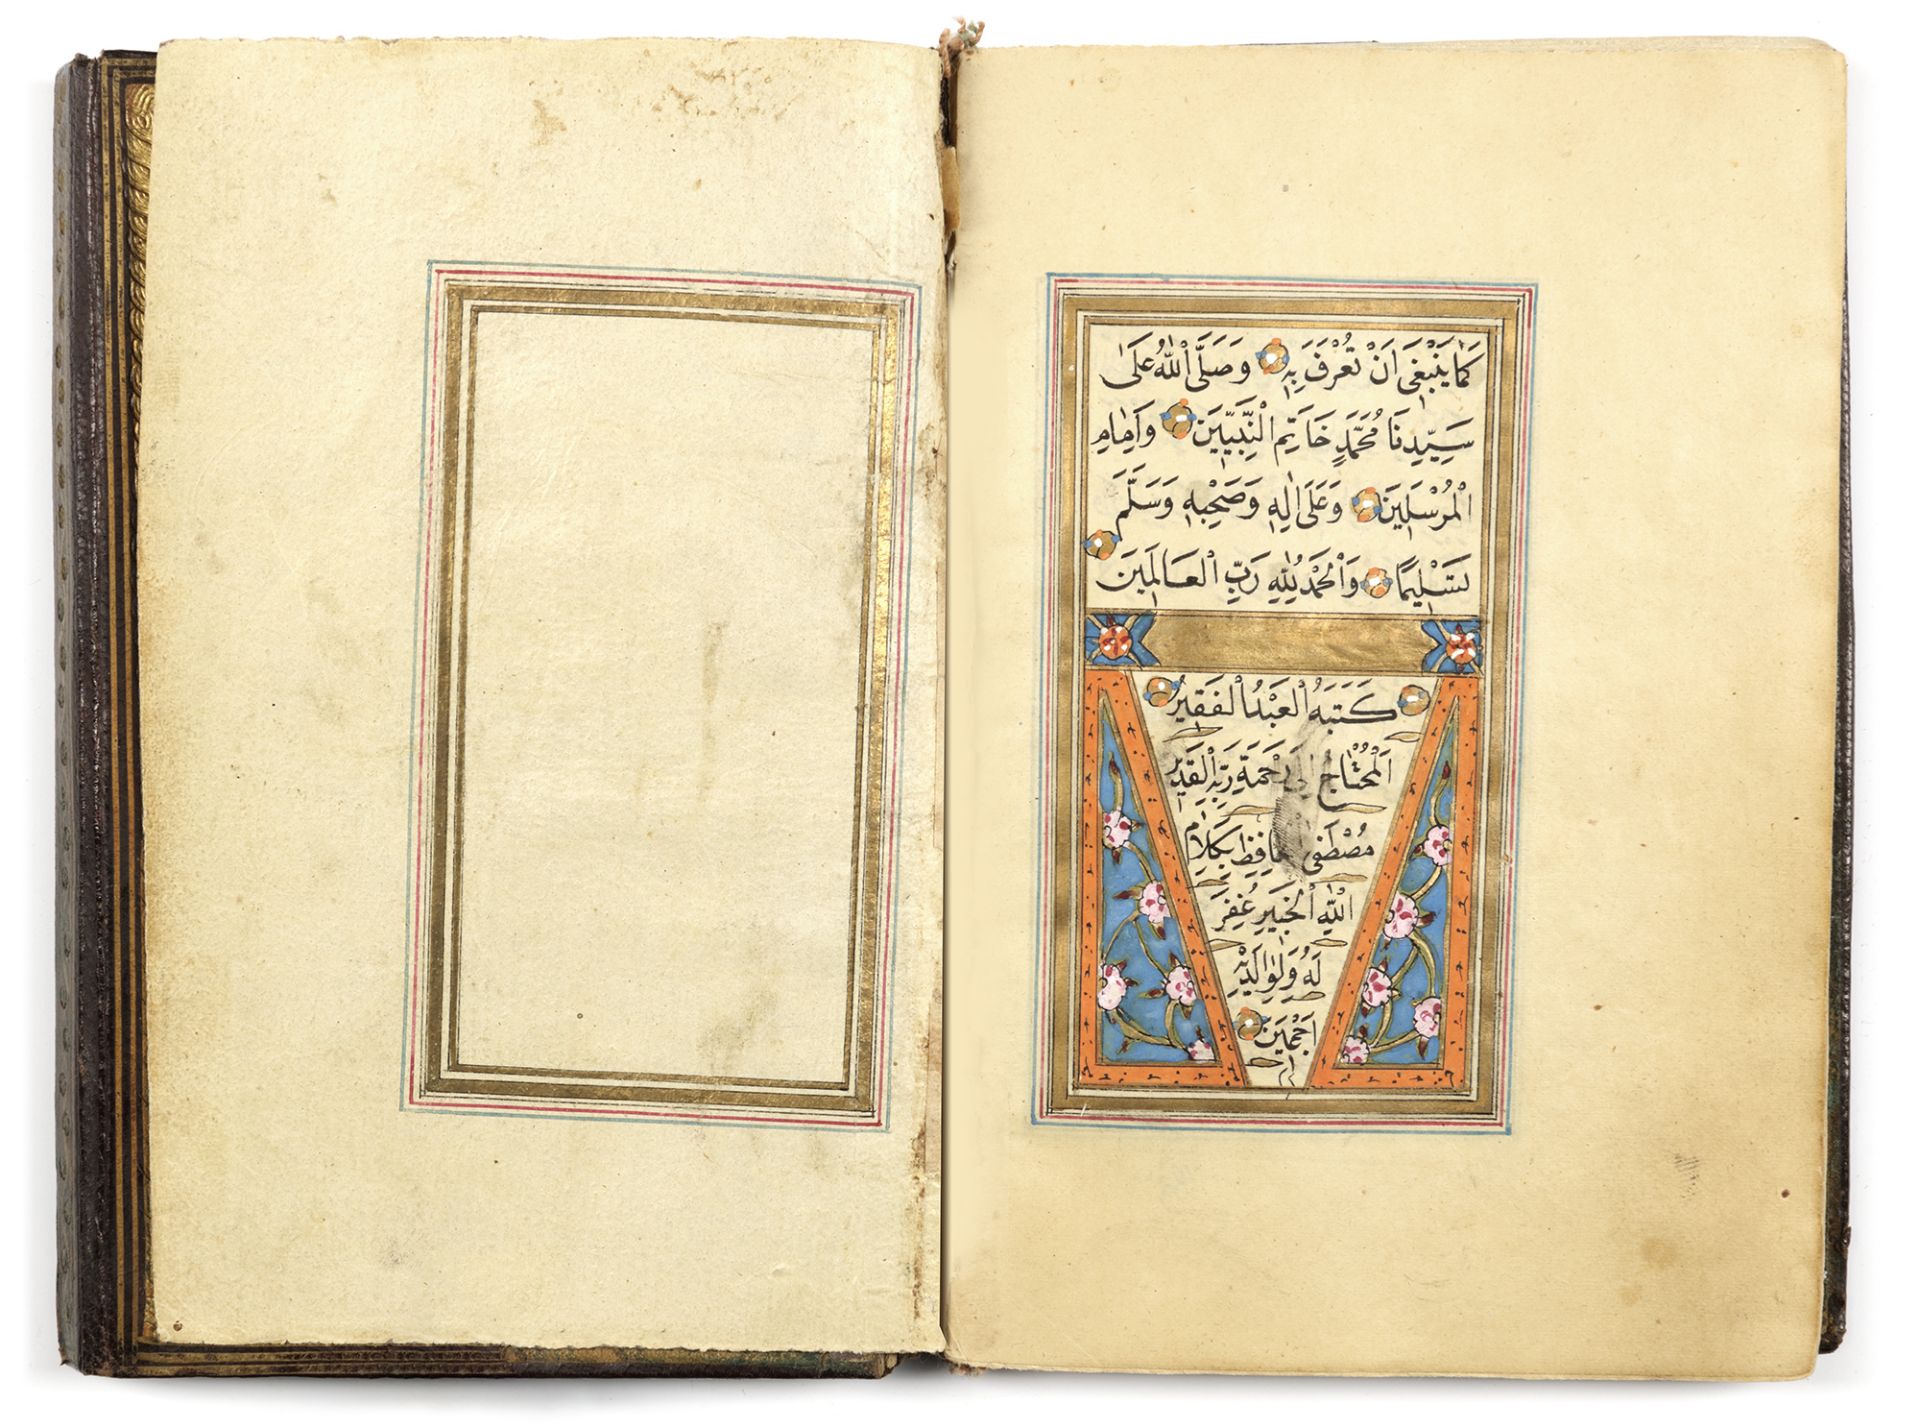 كَمَا يَنْبَغِى اَنْ تُعْرَفَ بِهِ وَصَلَّى اللّٰهُ عَلٰى
سَيِّدِنَا مُحَمَّدٍ خَاتِمِ النَّبِيّٖينَ وَاِمَامِ
الْمُرْسَلٖينَ وَعَلٰى اٰلِهٖ وَصَحْبِهٖ وَسَلَّمَ
تَسْلٖيمًا وَالْحَمْدُ لِلّٰهِ رَبِّ الْعَالَمٖينَ
كَتَبَهُ الْعَبْدُ الْفَقٖيرُ
اَلْمُحْتَاجُ اِلٰى رَحْمَةِ رَبِّهِ الْقَدٖيرِ
مُصْطَفٰى حَافِظِ بِكَلَامِ
اللّٰهِ الْخَبٖيرِ غُفِرَ
لَهُ وَلِوَالِدَيْهِ
اَجْمَعٖينَ